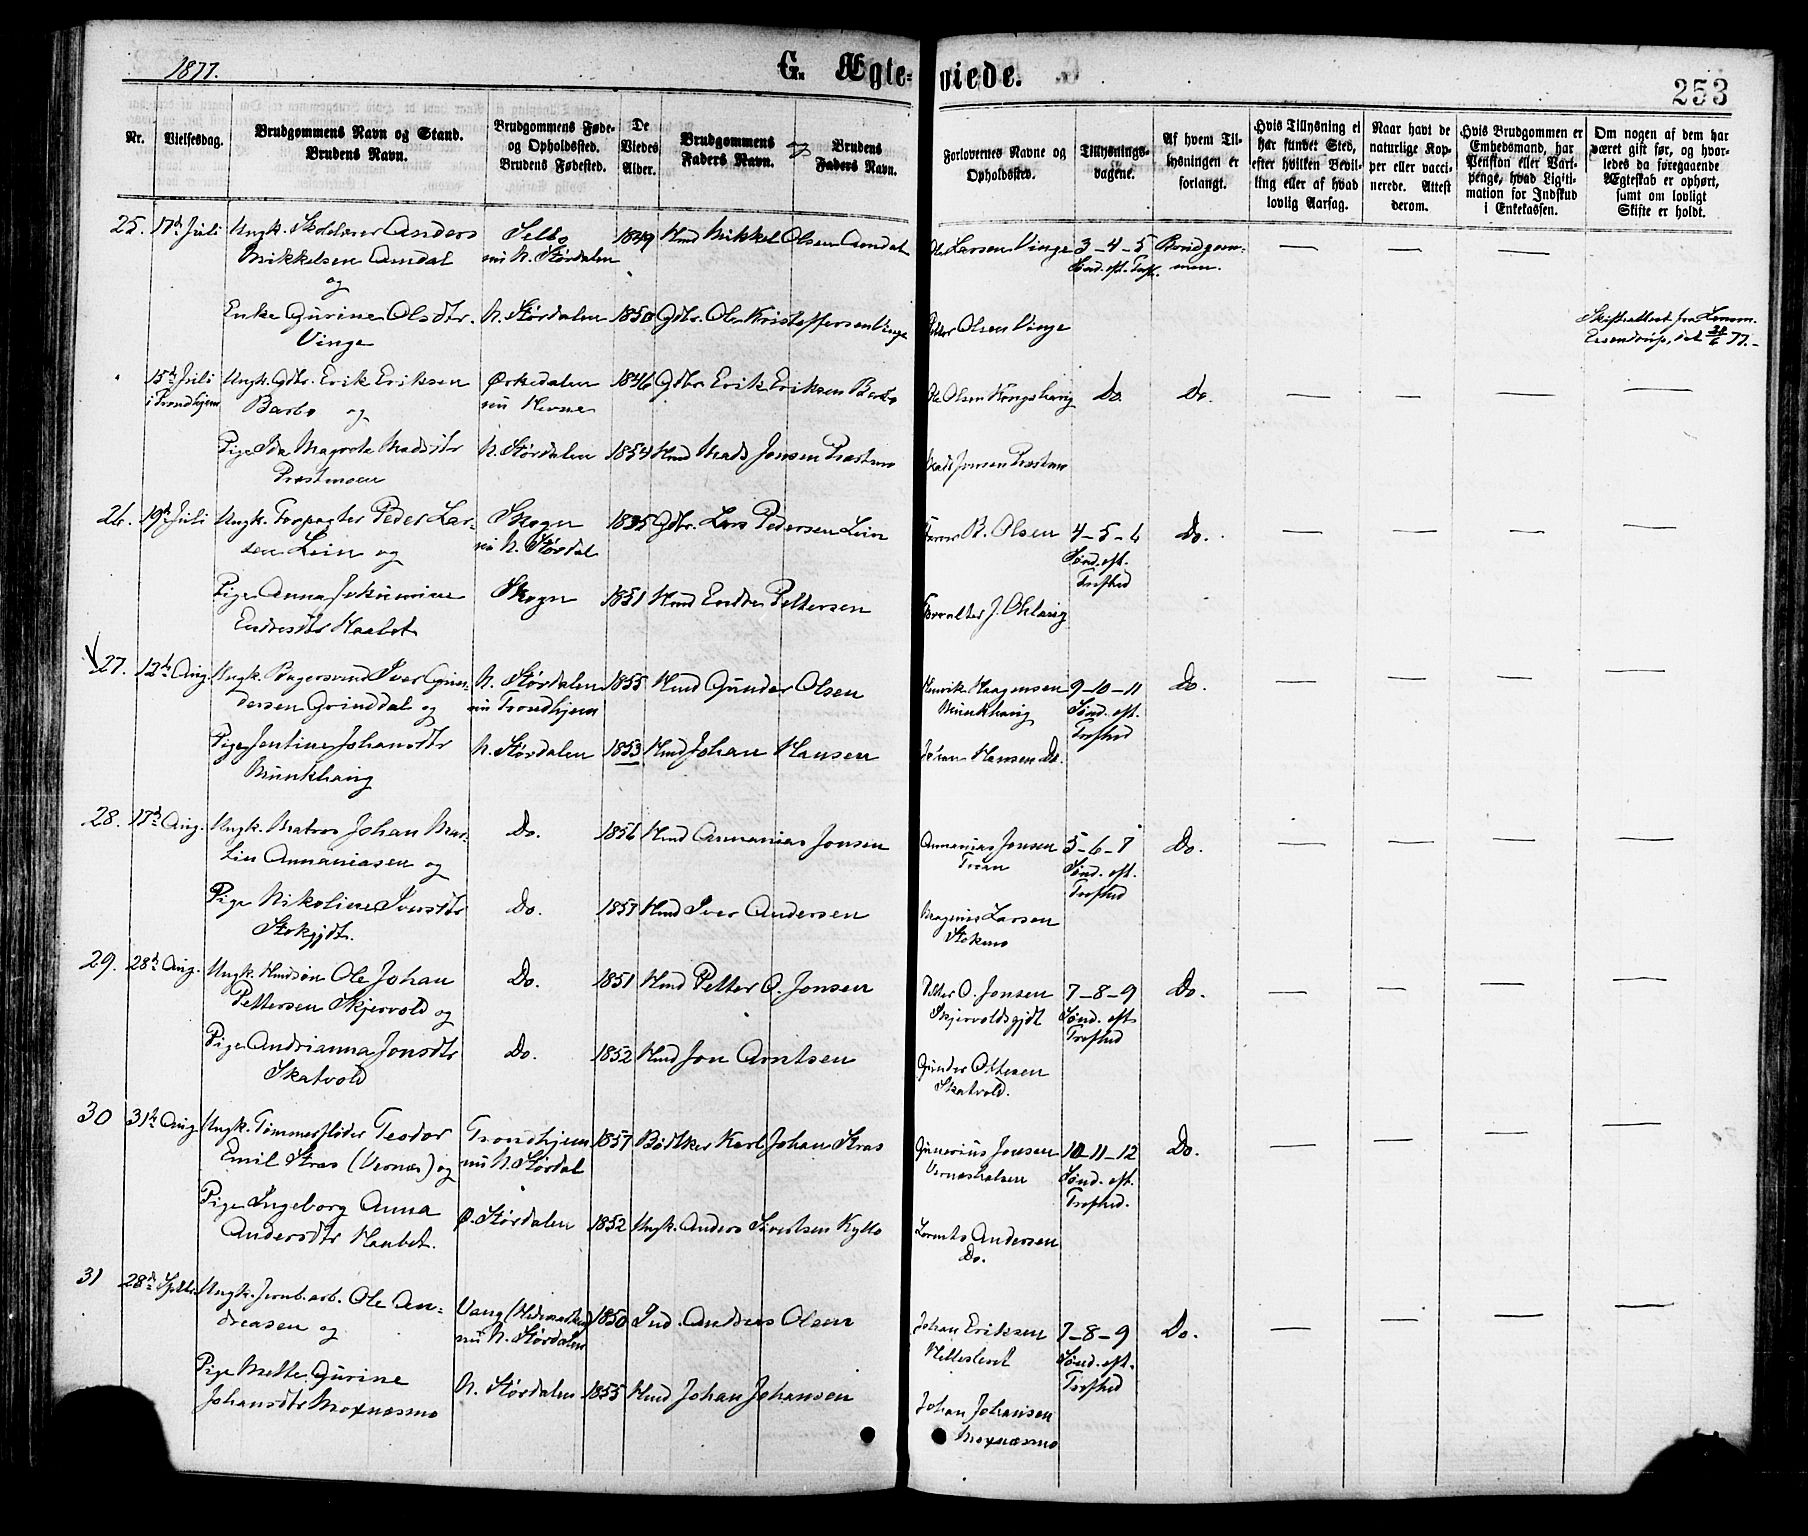 1877.
G. Ægteviede.
253
Nr.
Vielsesdag.
Brudgommens Navn og Stand.
Brudens Navn.
Brudgommens Føde-
og Opholdssted.
Brudens Fødested.
De
Viedes
Alder.
Brudgommens
Faders Navn.
og
Brudens
Faders Navn.
Forlovernes Navne og
Opholdssted.
Tillysnings-
dagene.
Af hvem Til-
lysningen er
forlangt.
Hvis Tillysning ei
har fundet Sted,
efter hvilken Bevil-
ling eller af hvad
lovlig Aarsag.
Naar havt de
naturlige Kop-
per eller vacci-
nerede. Attest
derom.
Hvis Brudgommen er
Embedsmand, har
Pension eller Vart-
penge, hvad Ligiti-
mation for Indskud
i Enkekassen.
Om nogen af dem har
været gift før, og hvor-
ledes da foregaaende
Ægteskab er ophørt,
samt om lovligt
Skifte er holdt.
25. 17de Juli Ungk. Skolelærer Anders Selbo 1849 Hmd Mikkel Olsen Amdal Ole Larsen Vinge 3-4-5 Brudgom-
Mikkelsen Amdal nu N. Størdalen Sønd. eft. Tref. men.
og
Enke Gurine Olsdtr. N. Størdalen 1850 Gdbr. Ole Kristoffersen Vinge Petter Olsen Vinge Skifteattest fra
Vinge 77.
15de Juli Ungk. Gdbr. Erik Eriksen Ørkedalen 1846 Gdbr Erik Eriksen Barbo Ole Olsen Kongshaug Do. Do.
i Trondhjem Barbo og nu Hevne
Pige Ida Magrete Madsdtr N. Størdalen 1854 Hmd Mads Jonsen Præstmo Mads Jonsen Præstmo
Præstmoen
26. 19de Juli Ungk. Peder Lar- Skogn 1835 Gdbr. Lars Pedersen Lein B. Olsen 4-5-6 Do.
sen Lein og nu N. Størdal Sønd. eft.
Trefhed
Pige Anna Skogn 1851 Hmd Endre Pettersen Forvalter J.
Endresdtr Haabet
27. 12te Aug. Ungk. Bagersvend Iver Gun- N. Størdalen 1855 Hmd Gunder Olsen Henrik Haagensen 9-10-11 Do.
dersen Grinddal og nu Trondhjem Munkhaug Sønd. eft.
Trefhed
Pige Jentine Johansdtr N. Størdalen 1853 Hmd Johan Hansen Johan Hansen Do.
Munkhaug
28. 17de Aug. Ungk. Matros Johan Mar- Do. 1856 Hmd Annanias Jonsen Annanias Jonsen 5-6-7 Do.
tin Annaniasen og Sønd. eft.
Trefhed
Pige Nikoline Iversdtr Do. 1857 Hmd Iver Andersen Larsen
Stokmo
29. 28de Aug. Ungk. Hmdsøn Ole Johan Do. 1851 Hmd Petter O. Jonsen Petter O. Jonsen 7-8-9 Do.
Pettersen Skjervold og Skjervoldsgjdt Sønd. eft.
Trefhed
Pige Andrianna Jonsdtr Do. 1852 Hmd Jon Arntsen Gunder Ottesen
Skatvold Skatvold.
30 31te Aug. Ungk. Tømmerfløder Teodor Trondhjem 1857 Bødtker Karl Johan Stras Gunerius Jonsen 10-11-12 Do.
Emil Stras (Vernæs) og nu N. Størdal Vernæshalsen Sønd. eft.
Trefhed.
Pige Ingeborg Anna Ø. Størdalen 1852 Ungk. Anders Sivertsen Kyllo Lorents Andersen
Andersdtr Haabet. Do.
31 28de Septbr. Ungk. Jernb.arb. Ole An- Vang (Hedemarken) 1850 Ind. Anders Olsen Johan Eriksen 7-8-9 Do.
dreasen og nu N. Størdalen Sønd. eft.
Trefhed
Pige Mette Gurine N. Størdalen 1855 Hmd Johan Johansen Johan Johansen
Johansdtr Moxnæsmo Moxnæsmo